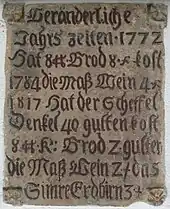 Veränderliche
Jahrs zeiten. 1772
Hat 8 ℔ Brod 8 kost
1784 die Maß Wein 4
1817 Hat der Scheffel
Denkel 40 gulten kost
8 ℔ K: Brod 2 gulten
die Maß Wein 2 das
Simre Erdbirn 3